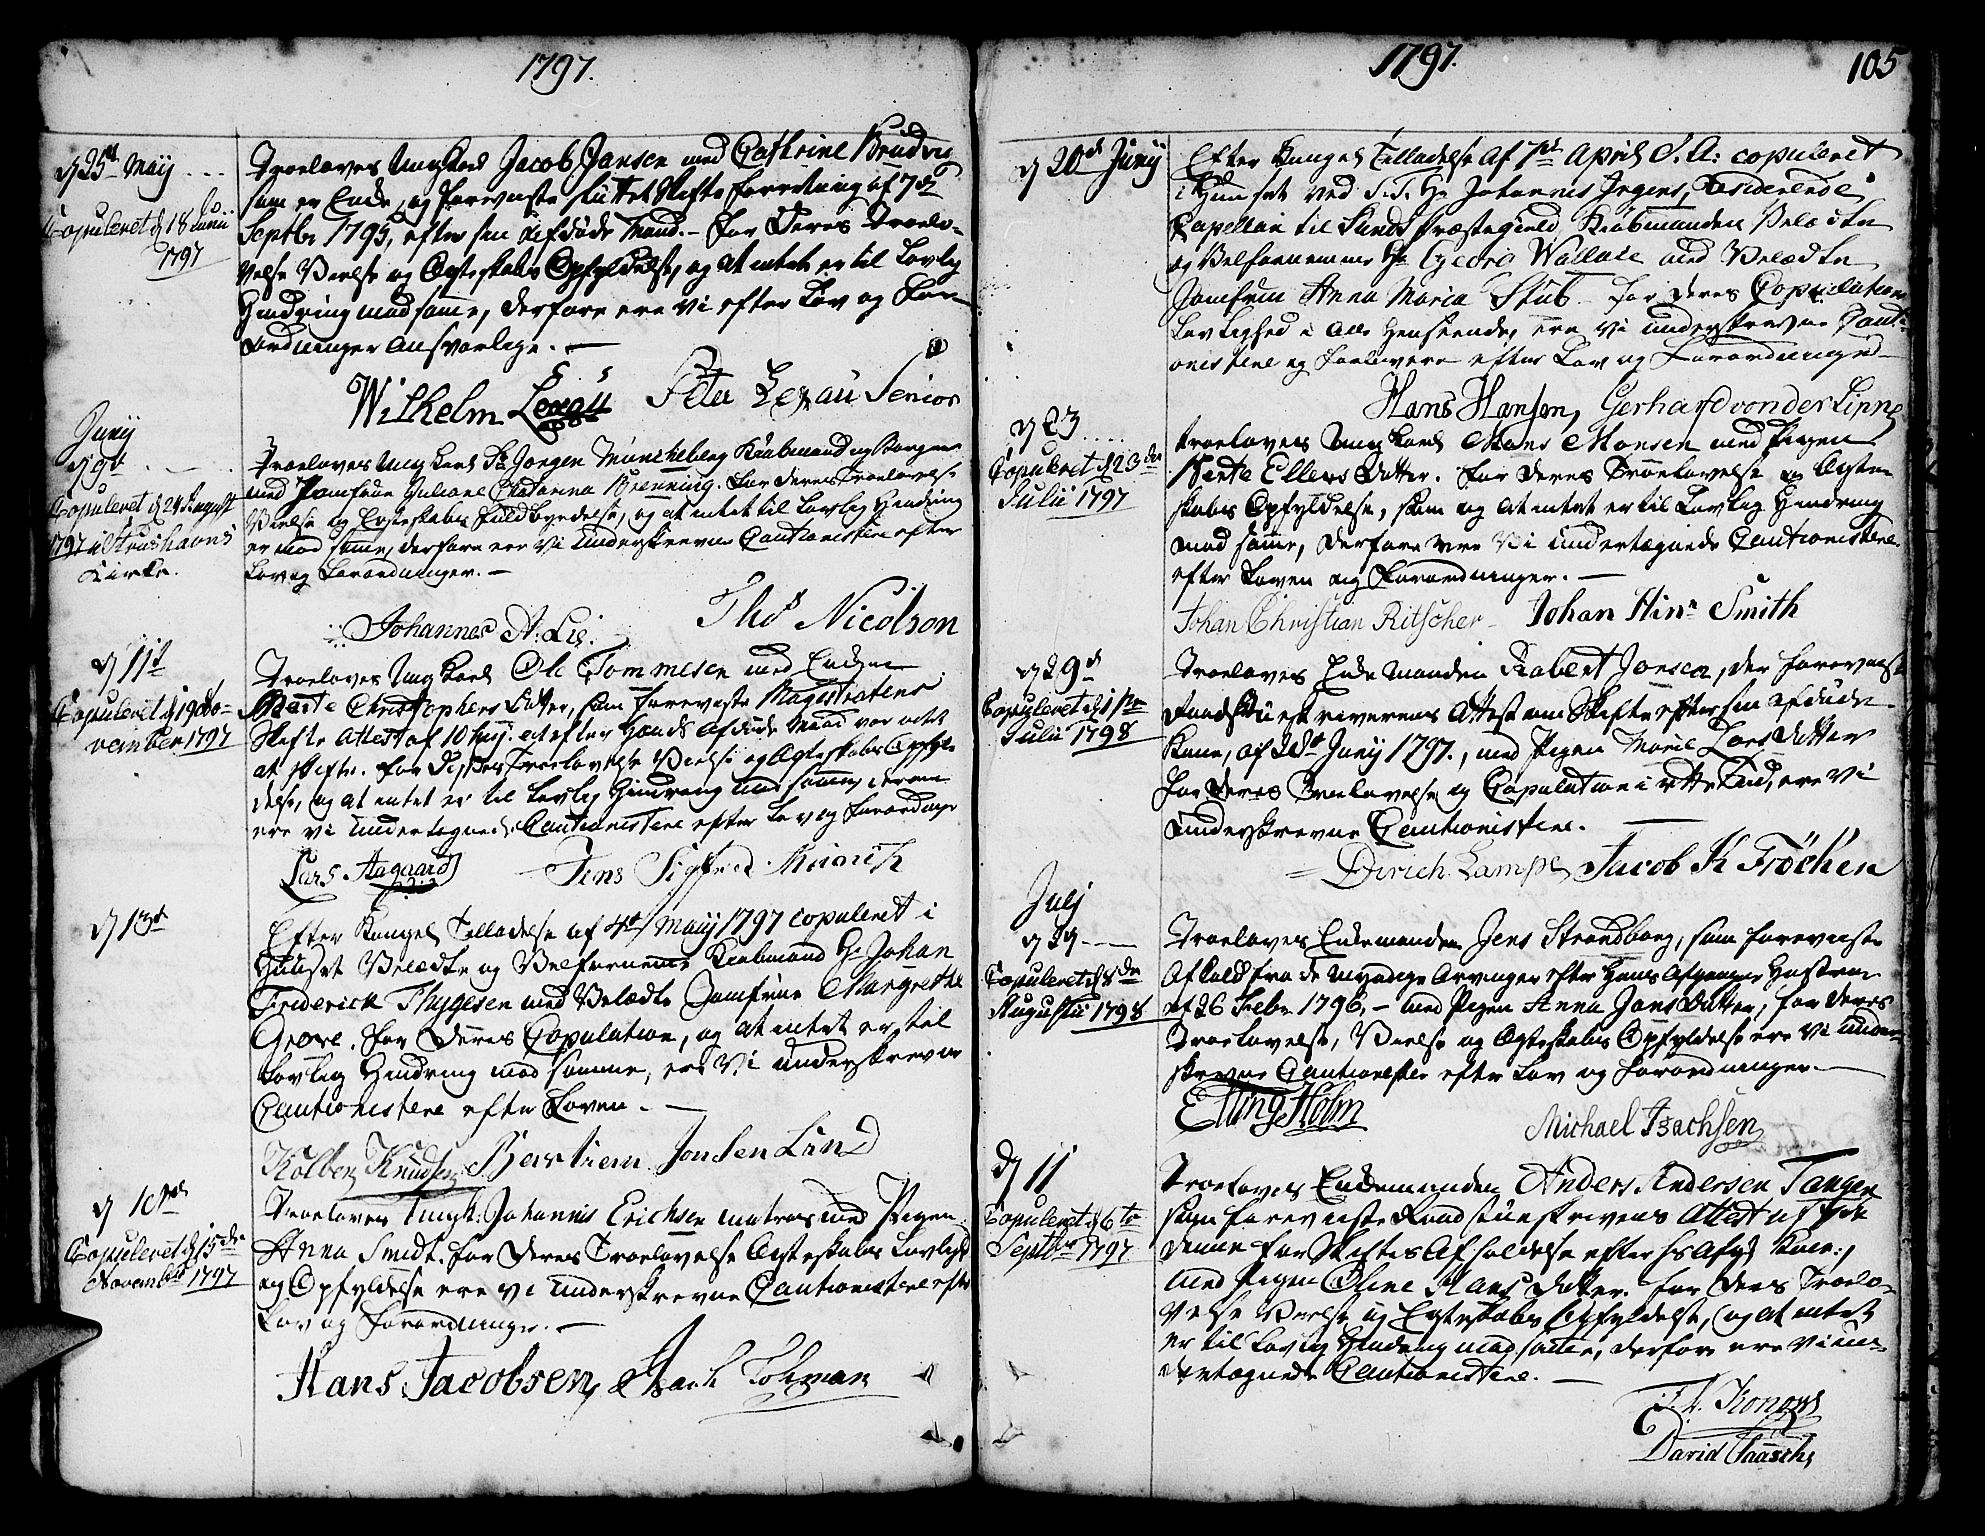 1797.
d 25de Maij ...
Copuleret d 18 Junii
1797
Troeloves Ungkarl Jacob Jansen med Cathrine Bruds
som er Enke, og foreviiste sluttet Skifte forretning af 7de
Septbr 1795, efter sin afdøde Mand. - For deres Troelo-
velse Vielse og Egteskabs Opfyldelse, og at intet er til Lovlig
Hindring mod samme, derfore ere vi efter Lov og For-
ordninger ansvarlige. -
Wilhelm Lexau Peter Lexau Senior
Junij
d 9de
Copuleret d 24 August
1797 i
Kirke.
Troeloves Ungkarl Sr Jørgen Münckeberg Kiøbmand og Borger
med Jomfrue Juliane Chatarina Brenning. For deres Troelovelse
Vielse og Egteskabs Fuldbyrdelse, og at intet til Lovlig Hindring
er mod samme, derfore ere Vi underskrevne Cautionistere efter
Lov og Forordninger. -
Johannes A. Lie. Ths Nicolson
d 11t
Copuleret d 19 No-
vember 1797
Troeloves Ungkarl Ole Tommesen med Enken
Berte Christophers Datter, som foreviste Magistratens
Skifte Attest af 10 huj. at efter hendes Afdøde Mand var intet
at skifte. For disses Troelovelse Vielse og Egteskabs Opfyl-
delse, og at intet er til Lovlig Hindring mod samme, derom
ere vi undertegnede Cautionistere efter Lov og Forordninger
Lars Aagaard Jens Sigfred
d 13de
Efter Kongel Tilladelse af 4de Maij 1797 copuleret i
Huuset Velædle og Velfornemme Kiøbmand Hr Johan
Friderich Thygesen med Velædle Jomfrue Margrethe
Grove. For deres Copulation, og at intet er til
Lovlig Hindring mod samme, ere Vi underskrevne
Cautionistere efter Loven. -
Kolben Knudsen Bastien Jonsen Lind
d 16de
Copuleret d 15de
November 1797
Troeloves Ungk: Johannes Erichsen matros med Pigen
Anna Smidt. For deres Troelovelse Egteskabs Lovlighed
og Opfyldelse ere vi underskrevne Cautionistere efter
Lov og Forordninger. -
Hans Jacobsen, Isach Tohman
1797.
105
d 20de Junij
Efter Kongel Tilladelse af 7de April S. A: copuleret
i Huuset ved S. T. Hr Johannes Irgens, Residerende
Capellan til Sunds Præstegield, Kiøbmanden Velædle
og Velfornemme Hr Georg Wallace med Velædle
Jomfrue Anna Maria Stub - For deres Copulations
Lovlighed i alle Henseender, ere Vi underskrevne Cauti-
onistere og Forlovere efter Lov og Forordninger -
Hans Hansen, Gerhard von der Lippe
d 23 ....
Copuleret d 23de
Julii 1797
Troeloves Ungkarl Mons Monsen med Pigen
Berte Ellens Datter. For deres Troelovelse og Egte-
skabs Opfyldelse, som og at intet er til Lovlig Hindring
mod samme, derfore ere Vi undertegnede Cautionistere
efter Loven og Forordninger. -
Johan Christian Ritscher - Johan Hinr Smith
d 29d
Copuleret d 1ste
Julii 1798
Troeloves Enkemanden Robert Jonsen, der foreviste
Raadstueskriverens Attest om Skifte efter sin afdøde
Kone, af 28de Junij 1797., med Pigen Marie Lars Datter
For deres Troelovelse og Copulation i rette Tid, ere Vi
underskrevne Cautionistere. -
Dirich Lampe Jacob K Fröchen
Julj
d 29 --
Copuleret d 8de
Augusti 1798
Troeloves Enkemanden Jens Strandborg, som foreviste
Afkald fra de Myndige Arvinger efter hans Afgangne Hustrue
af 26 Febr 1796, - med Pigen Anna Jans Datter, for deres
Troelovelse, Vielse og Egteskabs Opfyldelse ere Vi under-
skrevne Cautionister efter Lov og Forordninger. -
Elling Holm
Michael Isachsen
d 11
Copuleret d 6te
Septbr 1797
Troeloves Enkemanden Anders Andersen Tangen
som foreviiste Raadstueskrivens Attest af
denne for Skiftes Afholdelse efter hs Afg Kone,
med Pigen Oline Hans Datter. for deres Troelo-
velse Vielse og Egteskabs Opfyldelse, og at intet
er til Lovlig Hindring mod samme, derfore ere vi un-
dertegnede Cautionistere. -
Konow
David Paasche